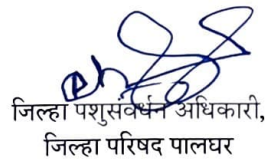 जिल्हा पशुसंवर्धन अधिकारी,
जिल्हा परिषद पालघर